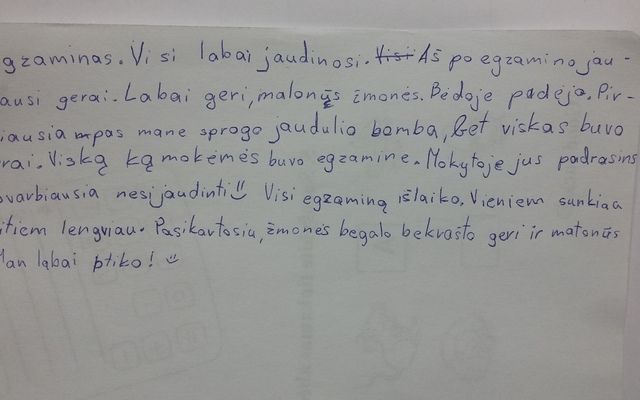 gzaminas. Visi labai jaudinosi. Visi Aš po egzamino jau-
ausi gerai. Labai geri, malonūs žmonės. Bėdoje padėjo. Pir-
iausia pas mane sprogo jaudulio bomba, Bet viskas buvo
rai. Viską ką mokėmės buvo egzamine. Mokytoje jus padrąsins
varbiausia nesijaudinti
Visi egzaminą išlaiko. Vieniem sunkiau
itiem lengviau. Pasikartosiu, žmonės begalo bekrašto geri ir matonūs
Man labai ptiko!